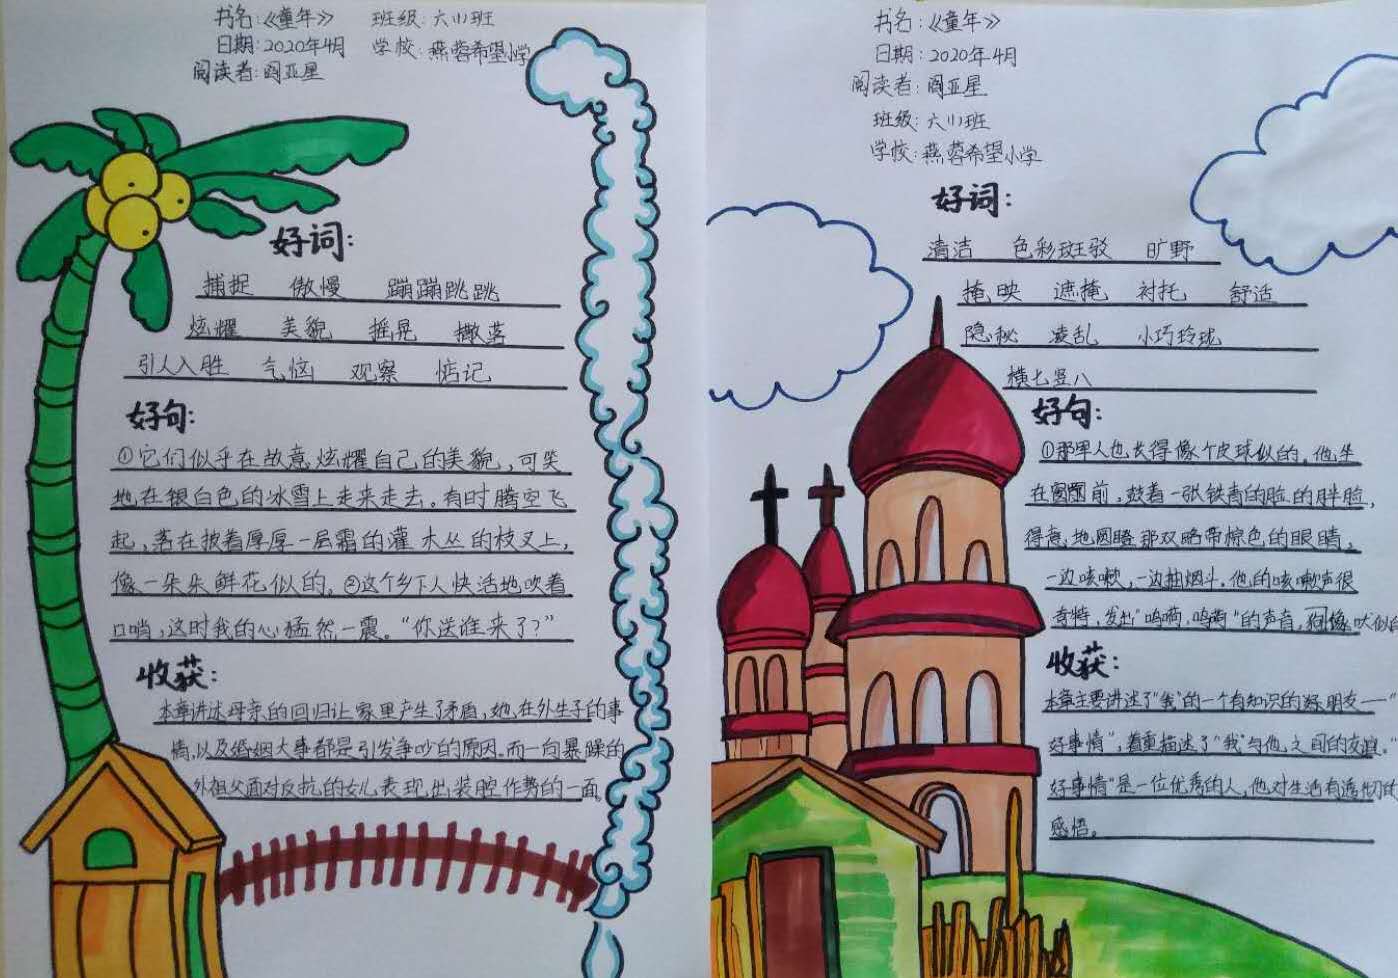 书名:《童年》 班级:六(1)班
日期:2020年4月 学校:燕蓉希望小学
阅读者:阎亚星
好词:
捕捉 傲慢 蹦蹦跳跳
炫耀 美貌 摇晃 撒落
引人入胜 气恼 观察 惦记
好句:
①它们似乎在故意炫耀自己的美貌,可笑
地在银白色的冰雪上走来走去。有时腾空飞
起,落在披着厚厚一层霜的灌木丛的枝叉上,
像一朵朵鲜花似的。②这个乡下人快活地吹着
口哨,这时我的心猛然一震。“你送谁来了?”
收获:
本章讲述母亲的回归让家里产生了矛盾,她在外生子的事
情,以及婚姻大事都是引发争吵的原因。而一向暴躁的
外祖父面对反抗的女儿表现出装腔作势的一面。
书名:《童年》
日期:2020年4月
阅读者:阎亚星
班级:六(1)班
学校:燕蓉希望小学
好词:
清洁 色彩斑驳 旷野
掩映 遮掩 衬托 舒适
隐秘 凌乱 小巧玲珑
横七竖八
好句:
①那军人也长得像个皮球似的,他坐
在窗前,鼓着一张铁青的脸的胖脸,
得意地圆瞪那双略带棕色的眼睛。
一边咳嗽,一边抽烟斗。他的咳嗽声很
奇特,发出“呜嗬,呜嗬”的声音,像吠似的
收获:
本章主要讲述了“我”的一个有知识的好朋友——“
好事情”,着重描述了“我”与他之间的友谊。“
好事情”是一位优秀的人,他对生活有透彻的
感悟。